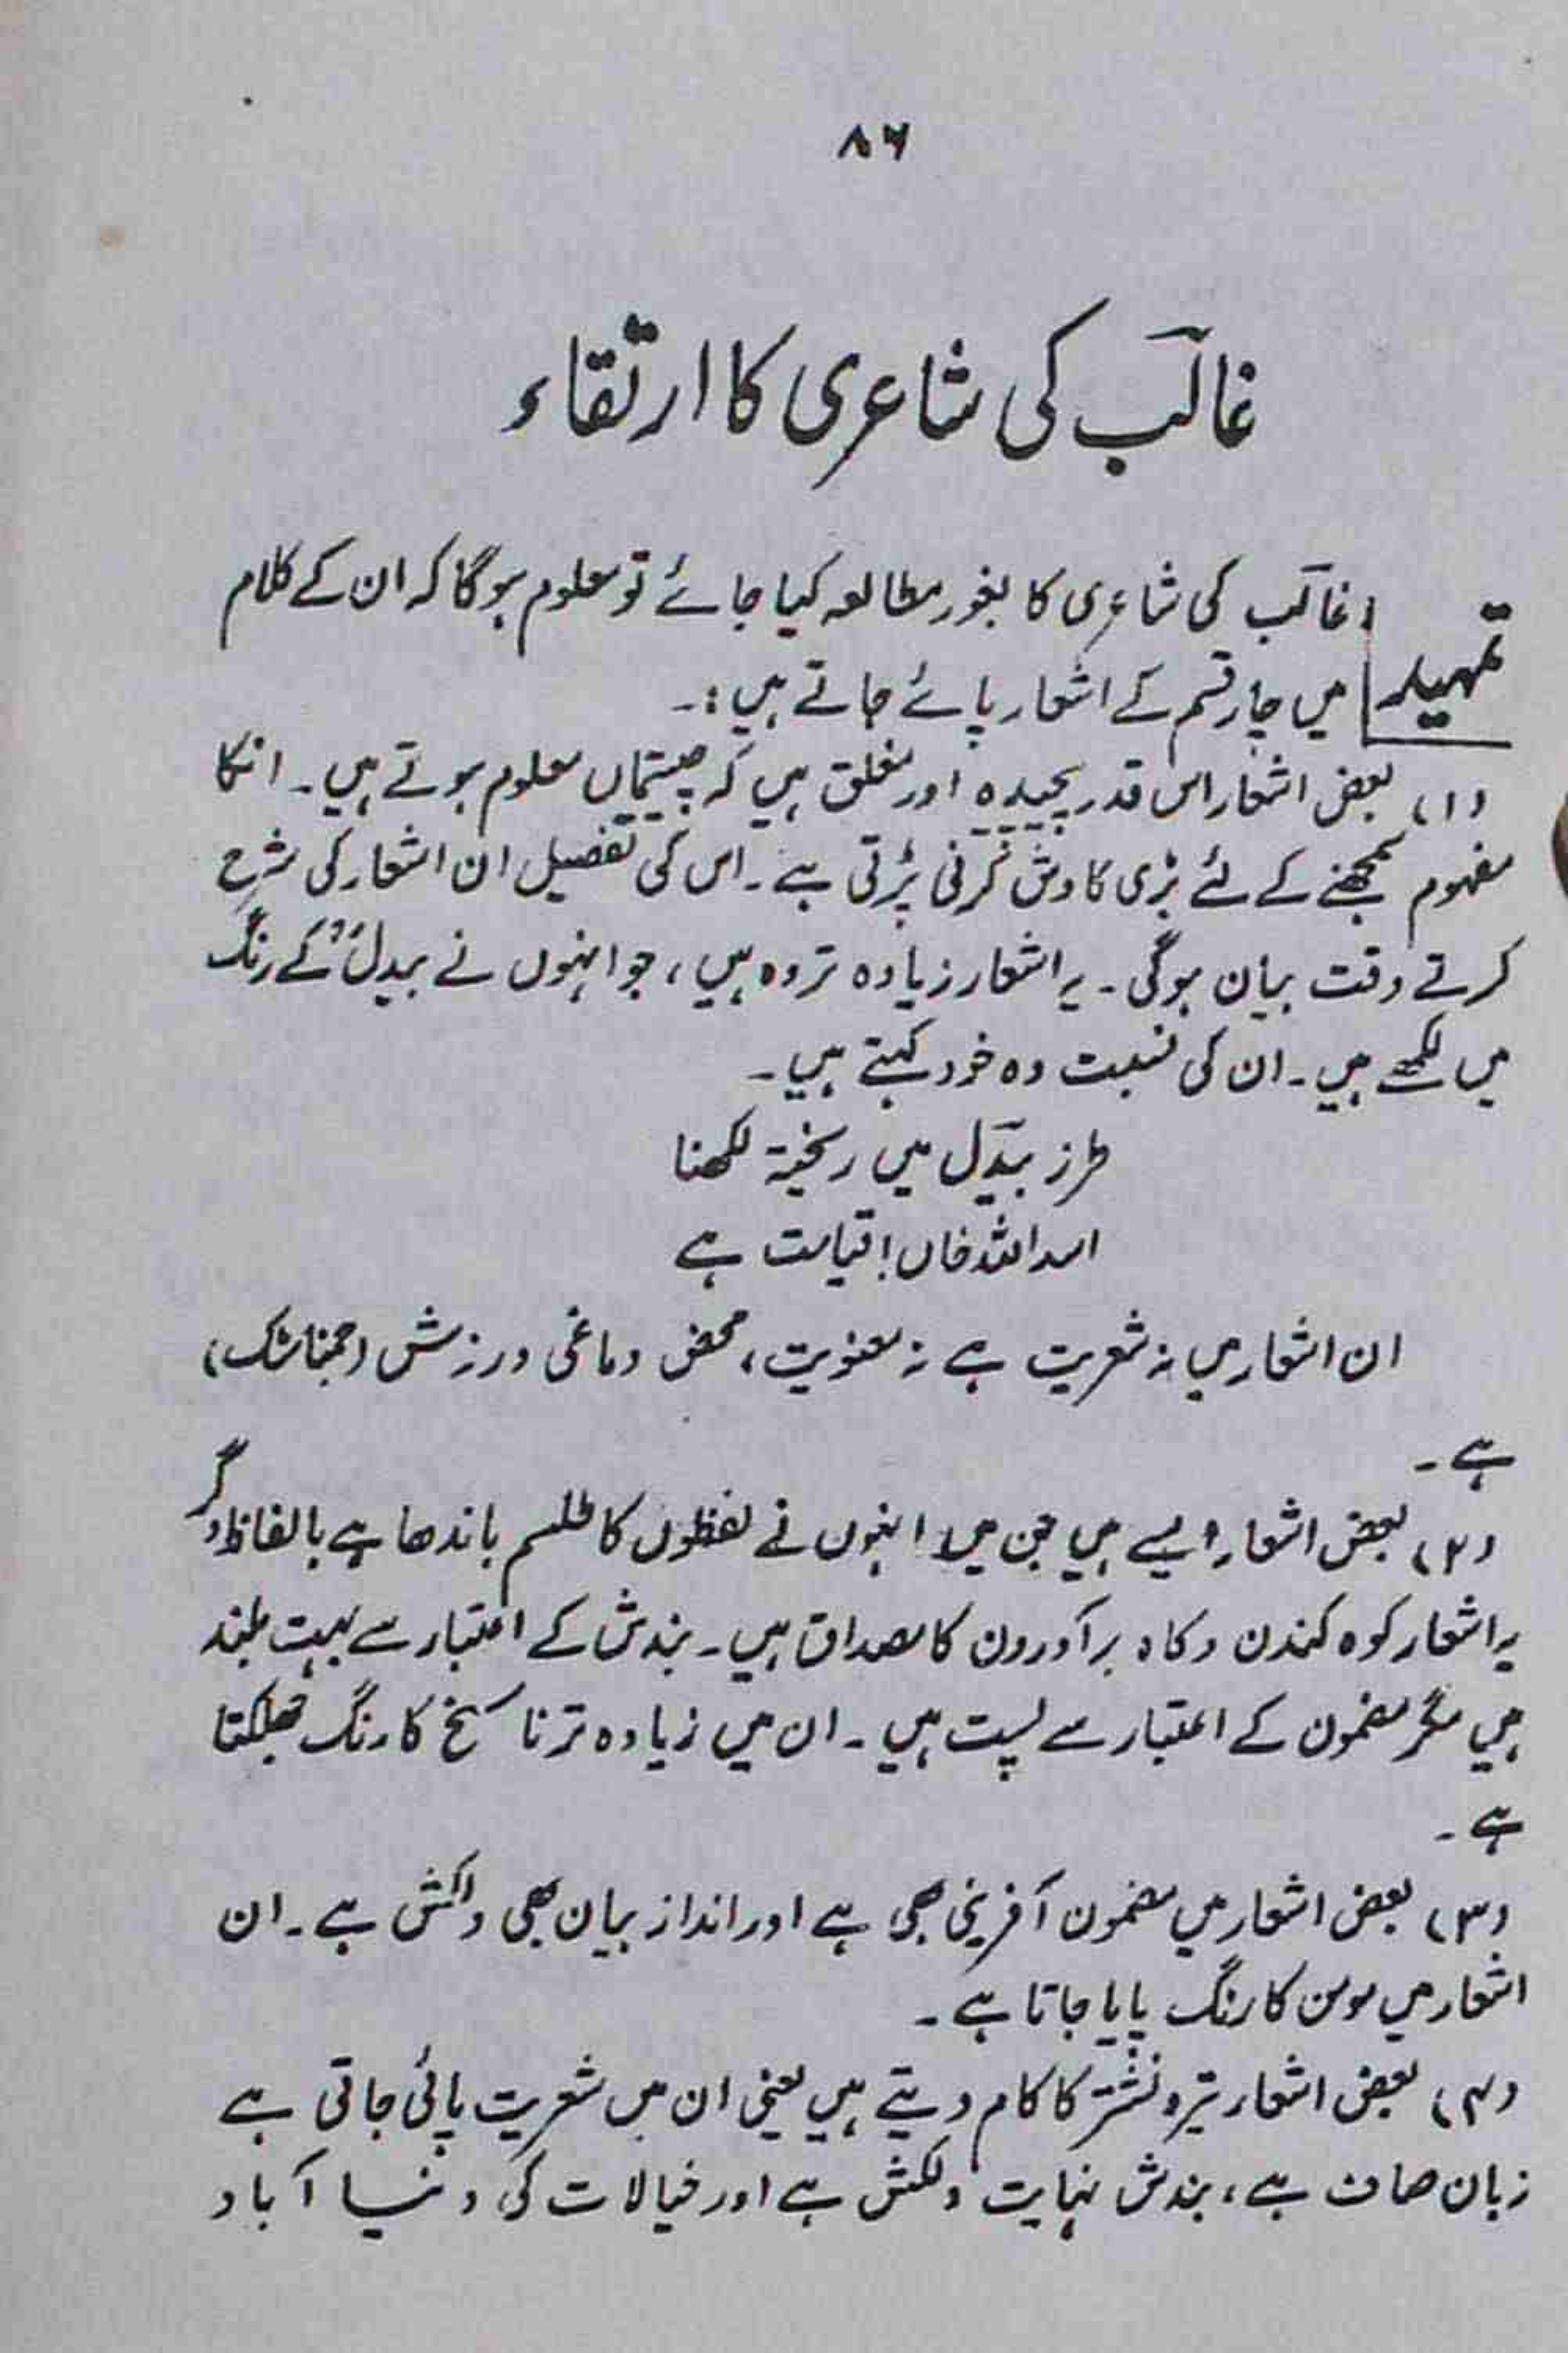 ۸۶
غالب کی شاعری کا ارتقاء
تمہید غالب کی شاعری کا بغور مطالعہ کیا جائے تو معلوم ہوگا کہ ان کے کلام
میں چار قسم کے اشعار پائے جاتے ہیں :۔
(۱) بعض اشعار اس قدر پیچیدہ اور مغلق ہیں کہ چیستاں معلوم ہوتے ہیں۔ انکا
مفہوم سمجھنے کے لئے بڑی کاوش کرنی پڑتی ہے۔ اس کی تفصیل ان اشعار کی شرح
کرتے وقت بیان ہوگی۔ یہ اشعار زیادہ تر وہ ہیں، جو انہوں نے بیدلؒ کے رنگ
میں لکھے ہیں۔ ان کی نسبت وہ خود کہتے ہیں۔
طرز بیدل میں ریختہ لکھنا
اسد اللہ خاں! قیامت ہے
ان اشعار میں نہ شعریت ہے نہ معنویت، محض دماغی ورزش (جمناسٹک)
ہے۔
(۲) بعض اشعار ایسے ہیں جن میں انہوں نے لفظوں کا طلسم باندھا ہے بالفاظ دگر
یہ اشعار کوہ کندن و کاہ برآوردن کا مصداق ہیں۔ بندش کے اعتبار سے بہت بلند
ہیں مگر مضمون کے اعتبار سے پست ہیں۔ ان میں زیادہ تر ناسخ کا رنگ جھلکتا
ہے۔
(۳) بعض اشعار میں مضمون آفرینی بھی ہے اور انداز بیان بھی دلکش ہے۔ ان
اشعار میں مومن کا رنگ پایا جاتا ہے۔
(۴) بعض اشعار تیر و نشتر کا کام دیتے ہیں یعنی ان میں شعریت پائی جاتی ہے
زبان صاف ہے، بندش نہایت دلکش ہے اور خیالات کی دنیا آباد